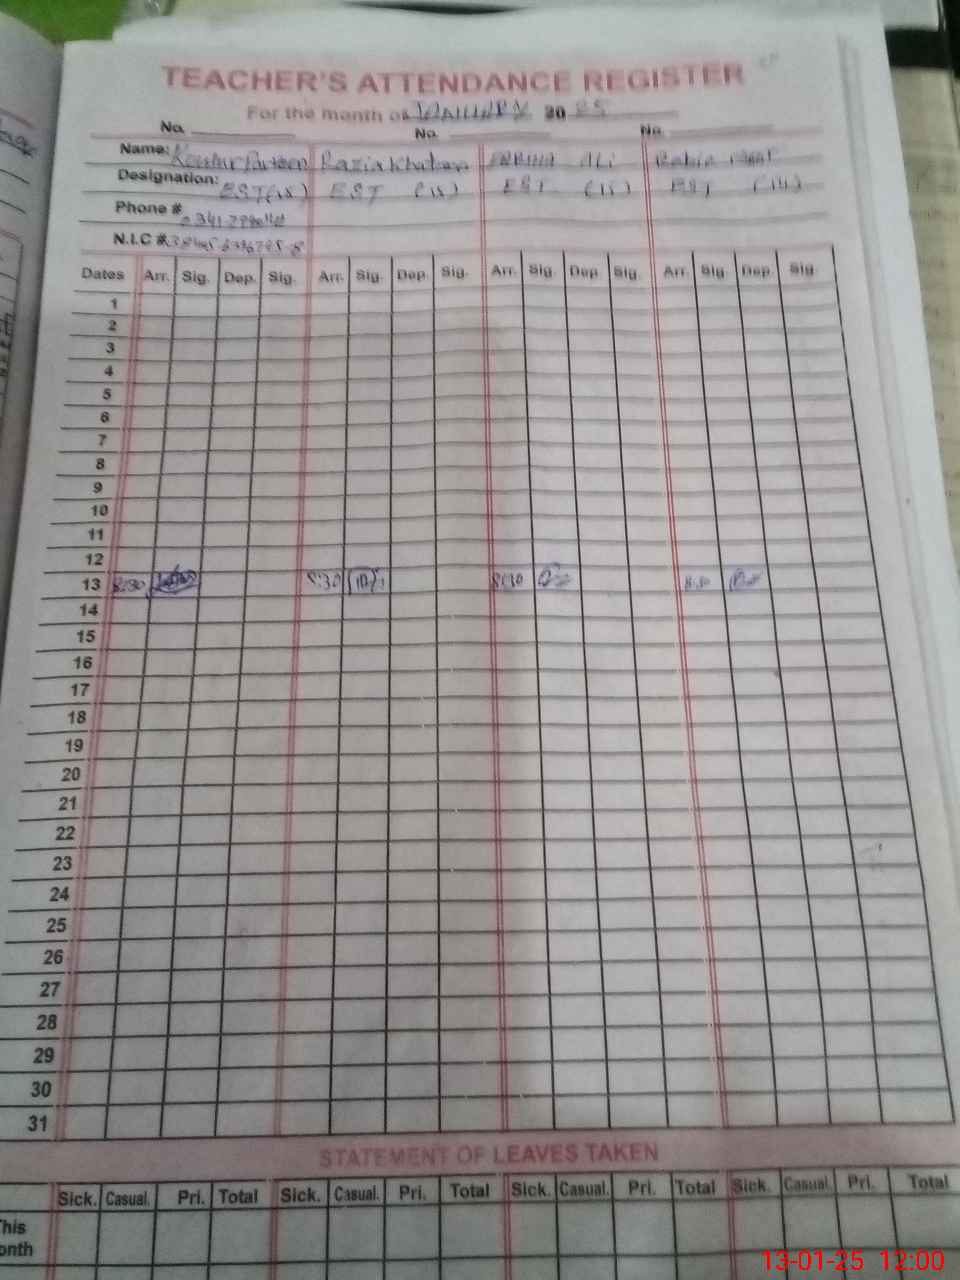 TEACHER'S ATTENDANCE REGISTER
For the month of JANUARY 2025
No. No. No.
Name: Kousar Parveen Razia Khatoon Ali Rabia
Designation: EST (15) EST (15) EST (15) EST (14)
Phone #
N.I.C #
Dates Arr. Sig. Dep. Sig. Arr. Sig. Dep. Sig. Arr. Sig. Dep. Sig. Arr. Sig. Dep. Sig.
1
2
3
4
5
6
7
8
9
10
11
12
13 8:30 8:30 8:30 8:30
14
15
16
17
18
19
20
21
22
23
24
25
26
27
28
29
30
31
STATEMENT OF LEAVES TAKEN
Sick. Casual. Pri. Total Sick. Casual. Pri. Total Sick. Casual. Pri. Total Sick. Casual. Pri. Total
This
onth
13-01-25 12:00